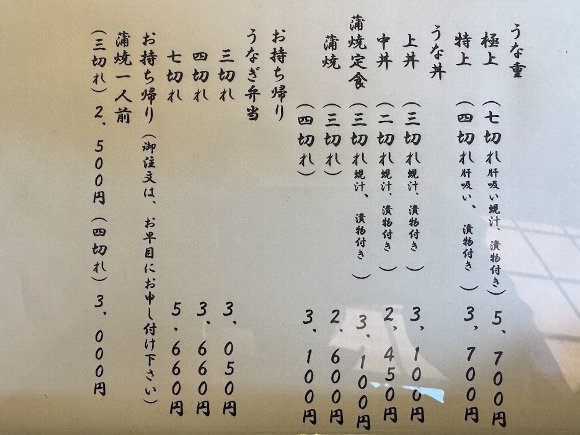 うな重
極上(七切れ肝吸い蜆汁、漬物付き)5,700円
特上(四切れ肝吸い、漬物付き)3,700円
うな丼
上丼(三切れ蜆汁、漬物付き)3,100円
中丼(二切れ蜆汁、漬物付き)2,450円
蒲焼定食(三切れ蜆汁、漬物付き)3,100円
蒲焼(三切れ)2,600円
(四切れ)3,100円
お持ち帰り
うなぎ弁当
三切れ 3,050円
四切れ 3,660円
七切れ 5.660円
お持ち帰り(御注文は、お早目にお申し付け下さい)
蒲焼一人前
(三切れ)2,500円(四切れ)3,000円